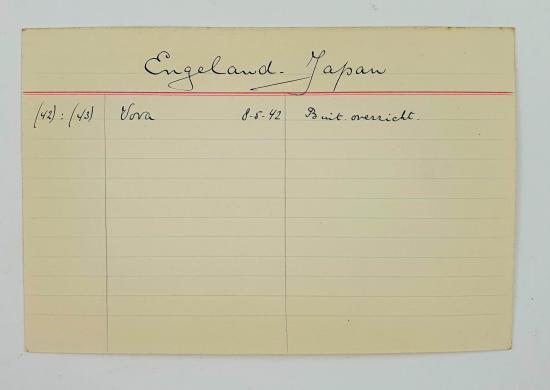 Engeland - Japan
(42) : (43) Vova 8-5-42 Buit. overzicht.